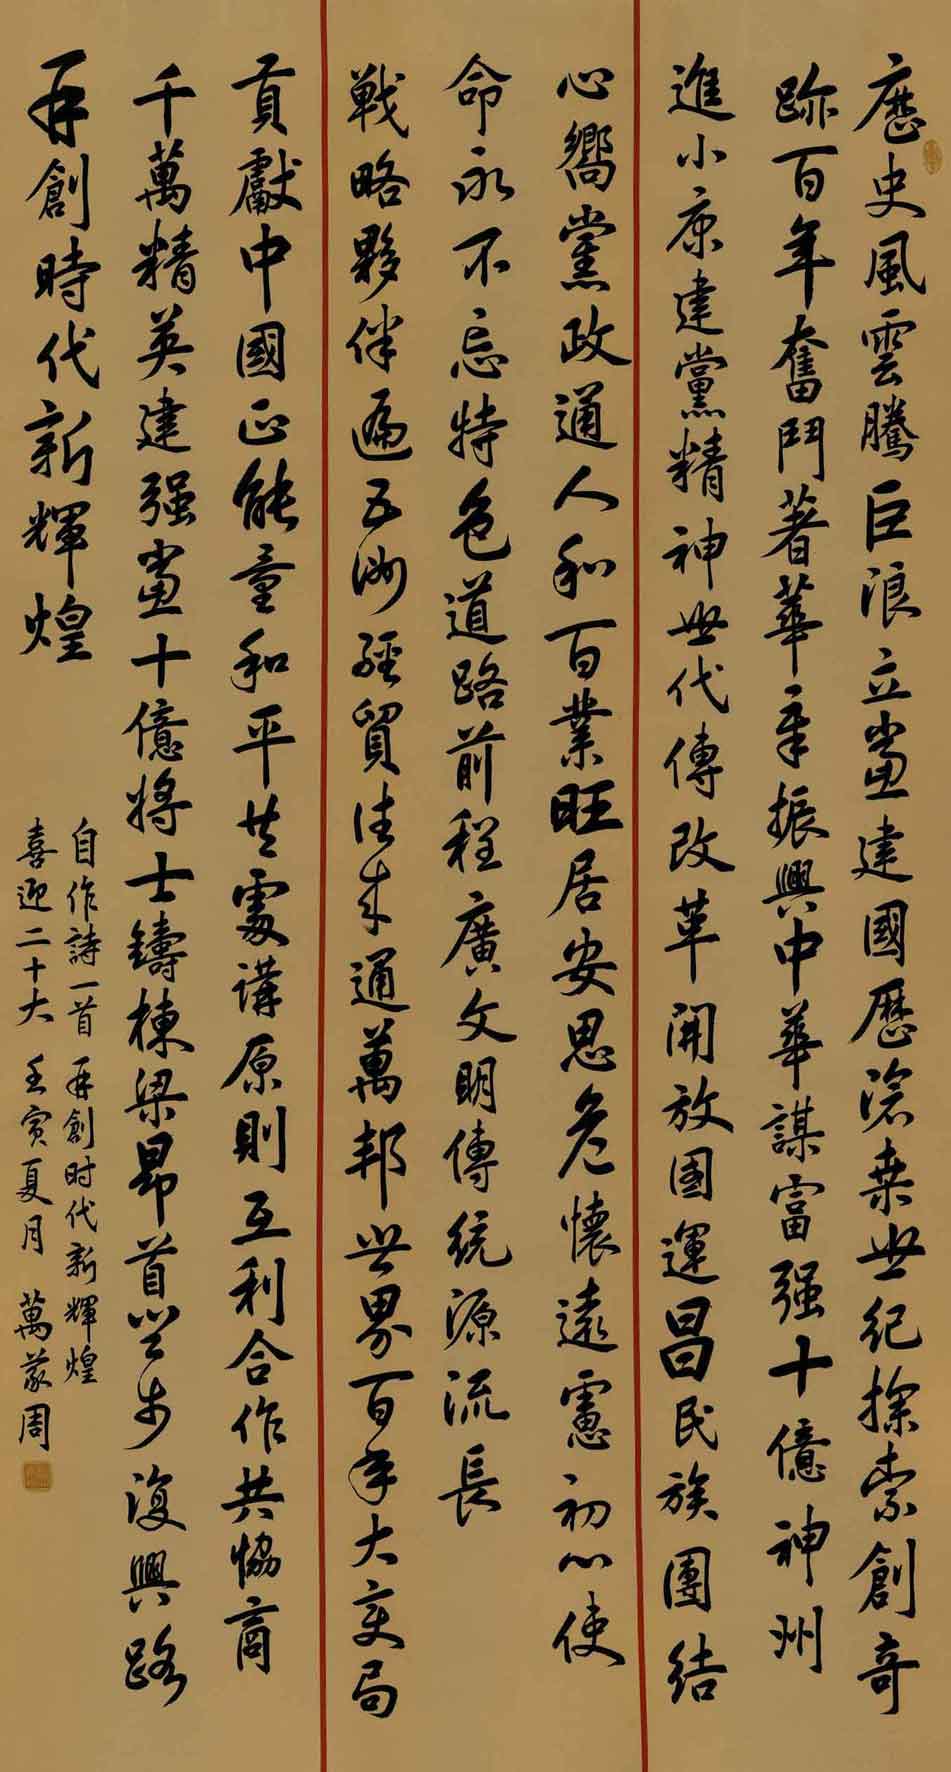 歷史風雲騰巨浪立黨建國歷滄桑世紀探索創奇
跡百年奮鬥著華章振興中華謀富强十億神州
進小康建黨精神世代傳改革開放國運昌民族團結
心嚮黨政通人和百業旺居安思危懷遠慮初心使
命永不忘特色道路前程廣文明傳統源流長
戰略夥伴遍五洲經貿往來通萬邦世界百年大变局
貢獻中國正能量和平共處講原則互利合作共協商
千萬精英建强黨十億將士鑄棟梁昂首闊步復興路
再創時代新輝煌
自作詩一首 再創时代新輝煌
喜迎二十大 壬寅夏月